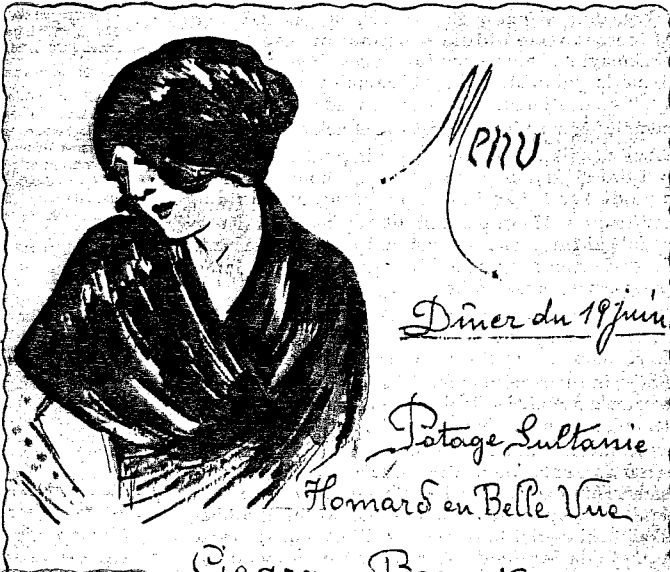 Menu
Dîner du 19 juin
Potage Sultanie
Homard en Belle Vue